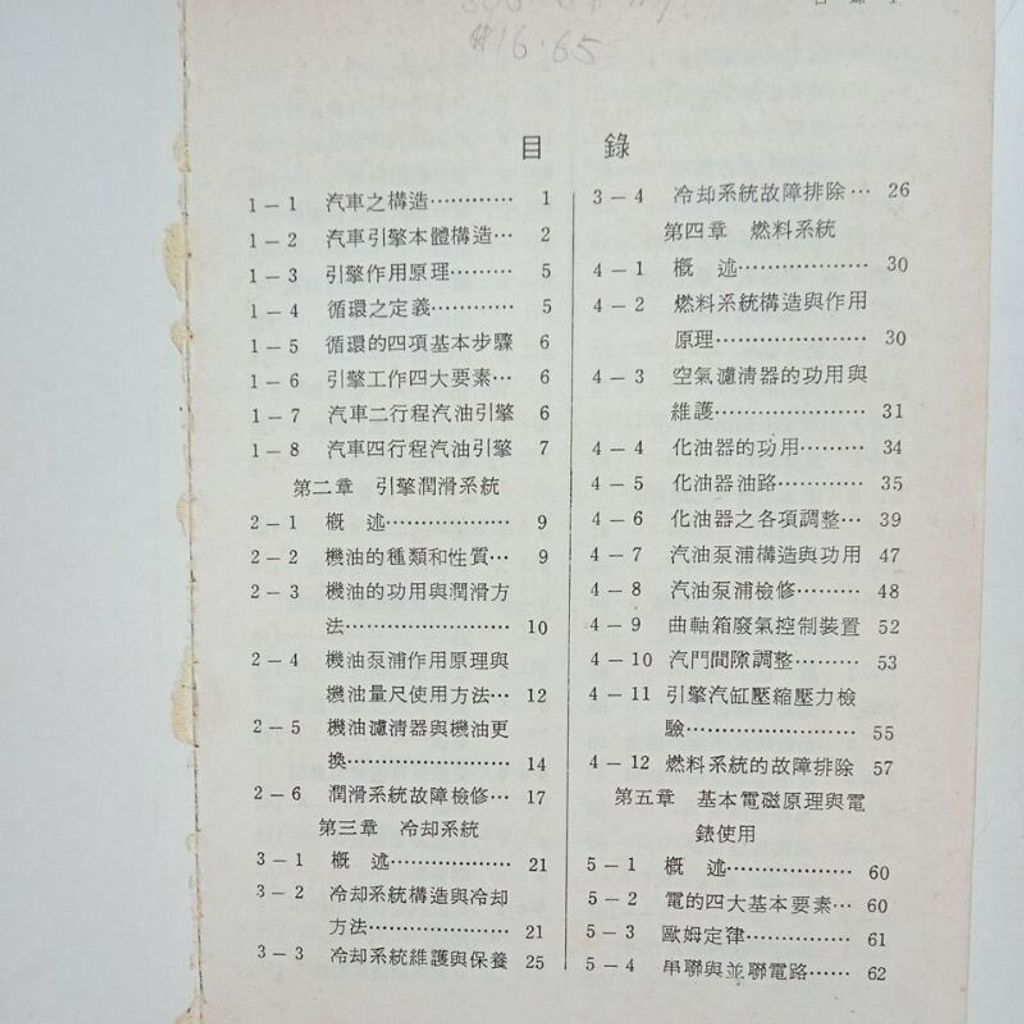 $16.65
目 錄
1－1 汽車之構造………… 1
1－2 汽車引擎本體構造… 2
1－3 引擎作用原理……… 5
1－4 循環之定義………… 5
1－5 循環的四項基本步驟 6
1－6 引擎工作四大要素… 6
1－7 汽車二行程汽油引擎 6
1－8 汽車四行程汽油引擎 7
第二章 引擎潤滑系統
2－1 概 述……………… 9
2－2 機油的種類和性質… 9
2－3 機油的功用與潤滑方
法…………………… 10
2－4 機油泵浦作用原理與
機油量尺使用方法… 12
2－5 機油濾清器與機油更
換…………………… 14
2－6 潤滑系統故障檢修… 17
第三章 冷却系統
3－1 概 述……………… 21
3－2 冷却系統構造與冷却
方法………………… 21
3－3 冷却系統維護與保養 25
3－4 冷却系統故障排除… 26
第四章 燃料系統
4－1 概 述……………… 30
4－2 燃料系統構造與作用
原理………………… 30
4－3 空氣濾清器的功用與
維護………………… 31
4－4 化油器的功用……… 34
4－5 化油器油路………… 35
4－6 化油器之各項調整… 39
4－7 汽油泵浦構造與功用 47
4－8 汽油泵浦檢修……… 48
4－9 曲軸箱廢氣控制裝置 52
4－10 汽門間隙調整……… 53
4－11 引擎汽缸壓縮壓力檢
驗…………………… 55
4－12 燃料系統的故障排除 57
第五章 基本電磁原理與電
錶使用
5－1 概 述……………… 60
5－2 電的四大基本要素… 60
5－3 歐姆定律…………… 61
5－4 串聯與並聯電路…… 62